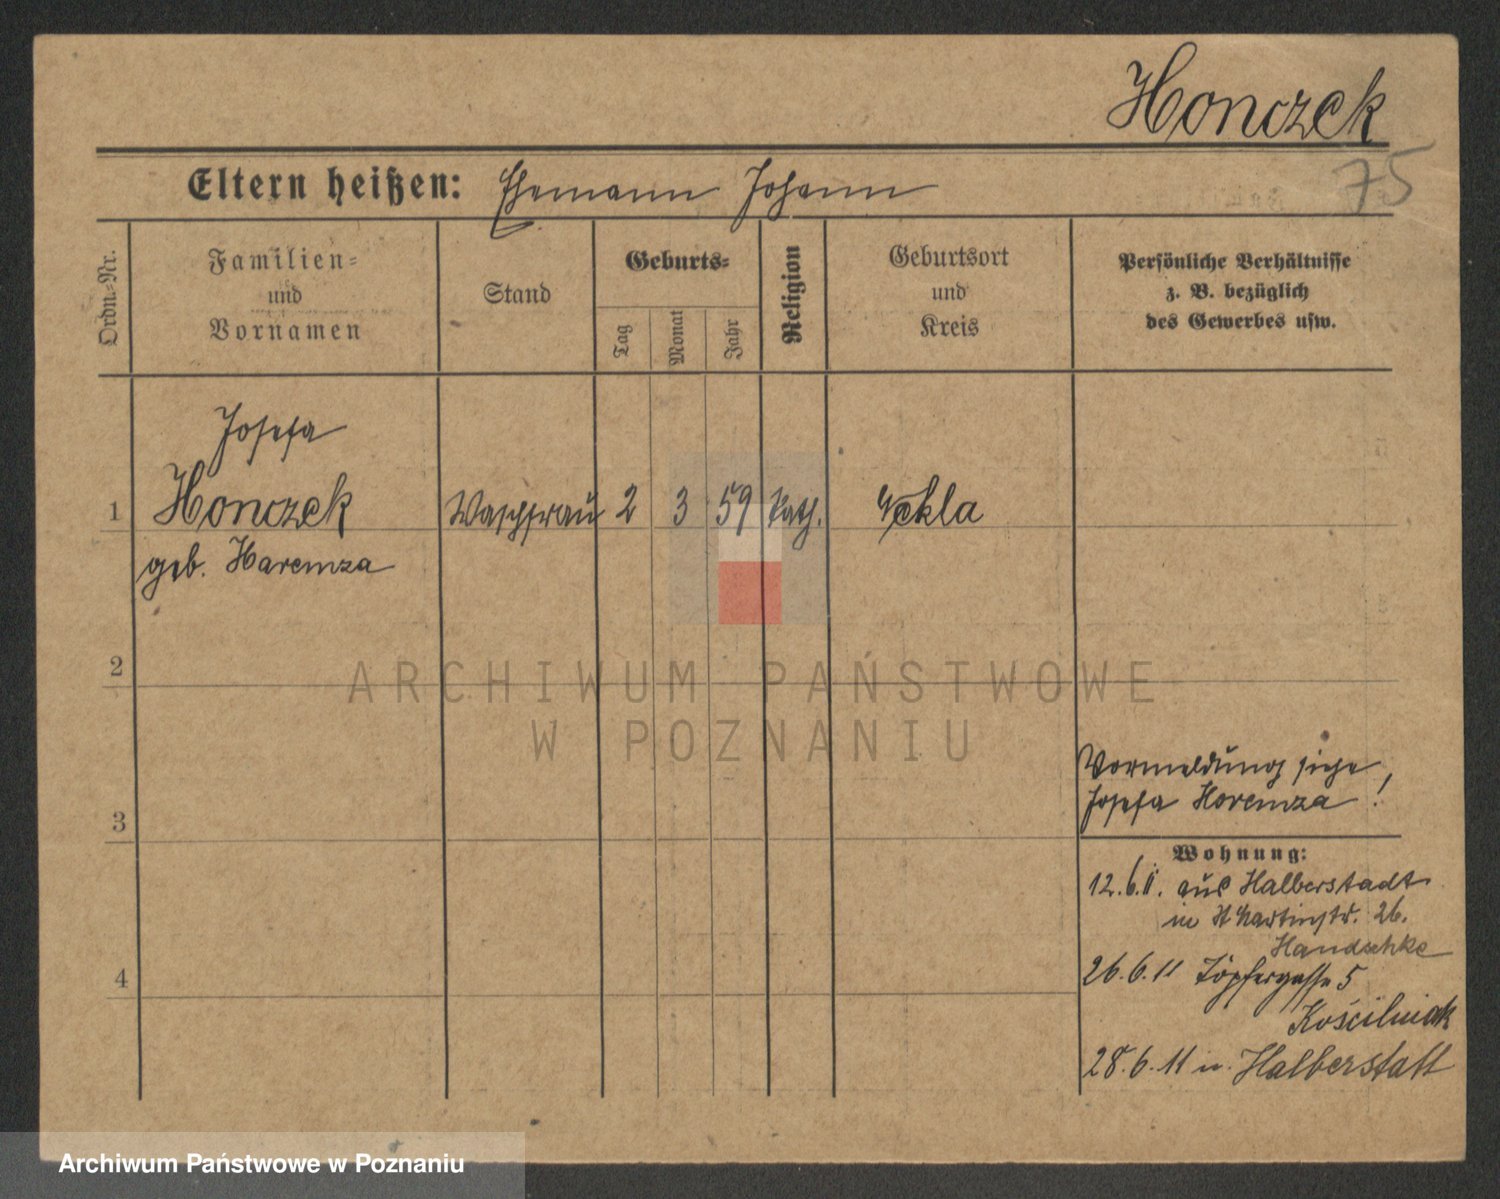 Honczek
75
Eltern heißen: Ehemann Johann
Ordn.-Nr.
Familien-
und
Vornamen
Stand
Geburts-
Tag
Monat
Jahr
Religion
Geburtsort
und
Kreis
Persönliche Verhältnisse
z. B. bezüglich
des Gewerbes usw.
Josefa
1 Honczek Waschfrau 2 3 59 kath.
geb. Haremza
2
ARCHIWUM PAŃSTWOWE
W POZNANIU
Vormeldung siehe
Josefa Horemza !
3
Wohnung:
12.6.11. aus Halberstadt
in St Martinstr. 26.
Handschke
4
26.6.11 Töpfergasse 5
Kościelniak
28.6.11 n. Halberstatt
Archiwum Państwowe w Poznaniu